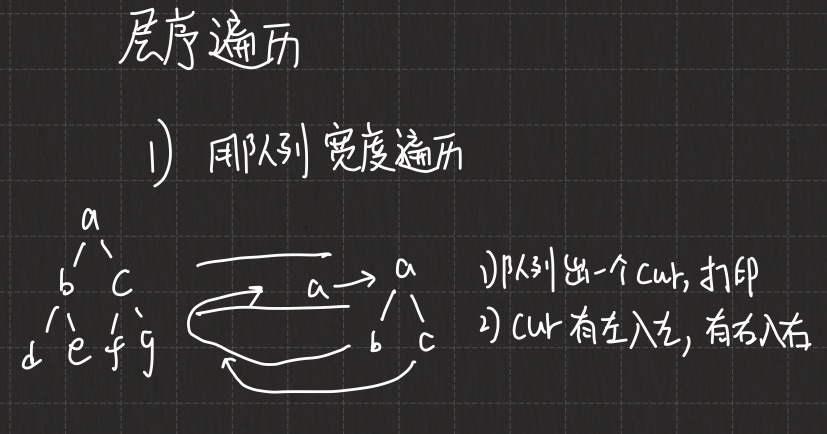 层序遍历
1) 用队列 宽度遍历
a
b c
d e f g
a → a
b c
1) 队列出一个cur, 打印
2) cur 有左入左, 有右入右